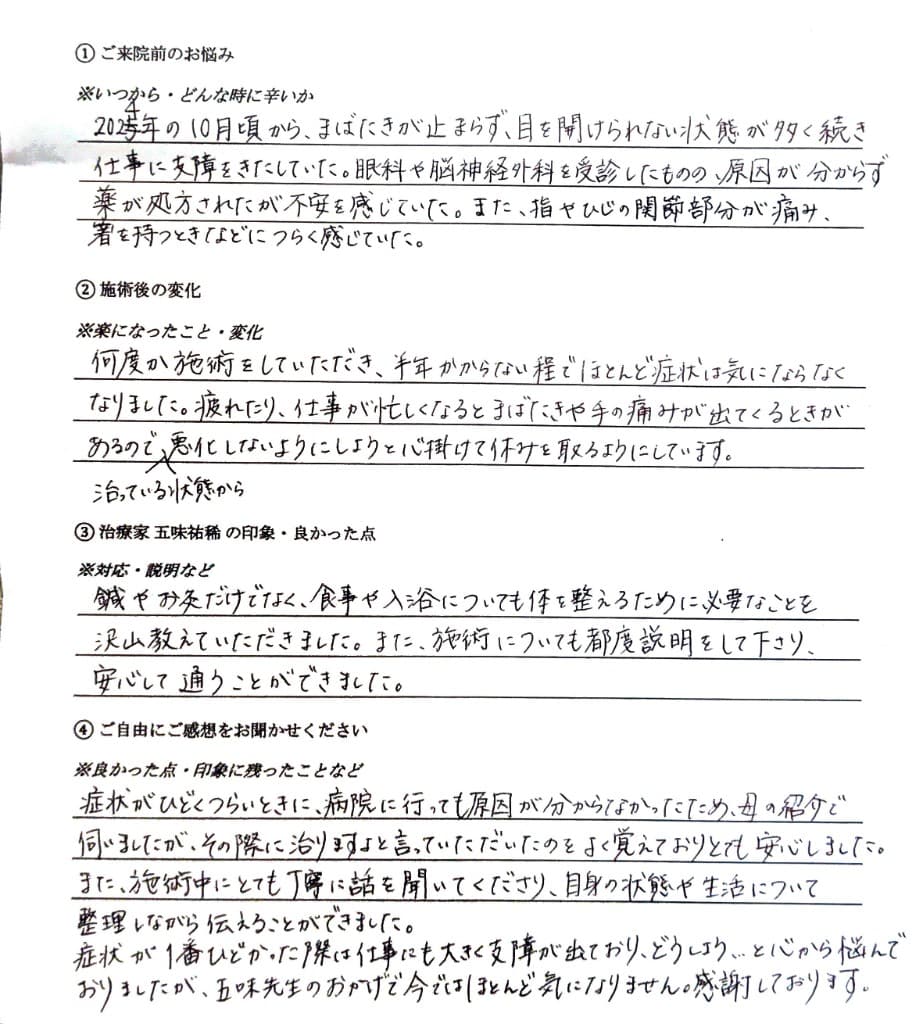 ① ご来院前のお悩み
※いつから・どんな時に辛いか
2024年の10月頃から、まばたきが止まらず、目を開けられない状態が多く続き
仕事に支障をきたしていた。眼科や脳神経外科を受診したものの、原因が分からず
薬が処方されたが不安を感じていた。また、指やひじの関節部分が痛み、
箸を持つときなどにつらく感じていた。
② 施術後の変化
※楽になったこと・変化
何度か施術をしていただき、半年かからない程でほとんど症状は気にならなく
なりました。疲れたり、仕事が忙しくなるとまばたきや手の痛みが出てくるときが
あるので、悪化しないようにしようと心掛けて休みを取るようにしています。
治っている状態から
③ 治療家 五味祐稀 の印象・良かった点
※対応・説明など
鍼やお灸だけでなく、食事や入浴についても体を整えるために必要なことを
沢山教えていただきました。また、施術についても都度説明をして下さり、
安心して通うことができました。
④ ご自由にご感想をお聞かせください
※良かった点・印象に残ったことなど
症状がひどくつらいときに、病院に行っても原因が分からなかったため、母の紹介で
伺いましたが、その際に治りますよと言っていただいたのをよく覚えておりとても安心しました。
また、施術中にとても丁寧に話を聞いてくださり、自身の状態や生活について
整理しながら伝えることができました。
症状が1番ひどかった際は仕事にも大きく支障が出ており、どうしよう…と心から悩んで
おりましたが、五味先生のおかげで今ではほとんど気になりません。感謝しております。